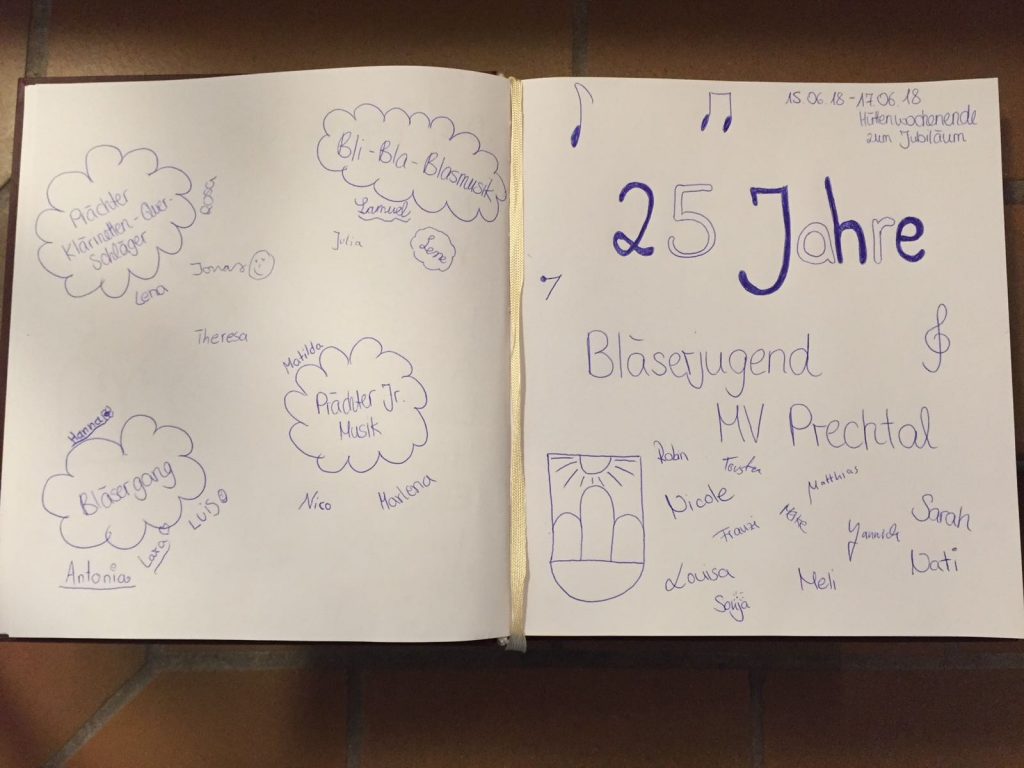 Bli-Bla-Blasmusik
Samuel
Julia
Lene
Prächter
Klarinetten-Quer-
Schläger
Rosa
Jonas
Lena
Theresa
Matilda
Prächter Jr.
Musik
Nico
Marlena
Hanna
Bläsergang
Luis
Lara
Antonia
15.06.18-17.06.18
Hüttenwochenende
zum Jubiläum
25 Jahre
Bläserjugend
MV Prechtal
Robin
Matthias
Nicole
Franzi
Yannick
Sarah
Louisa
Meli
Nati
Sonja